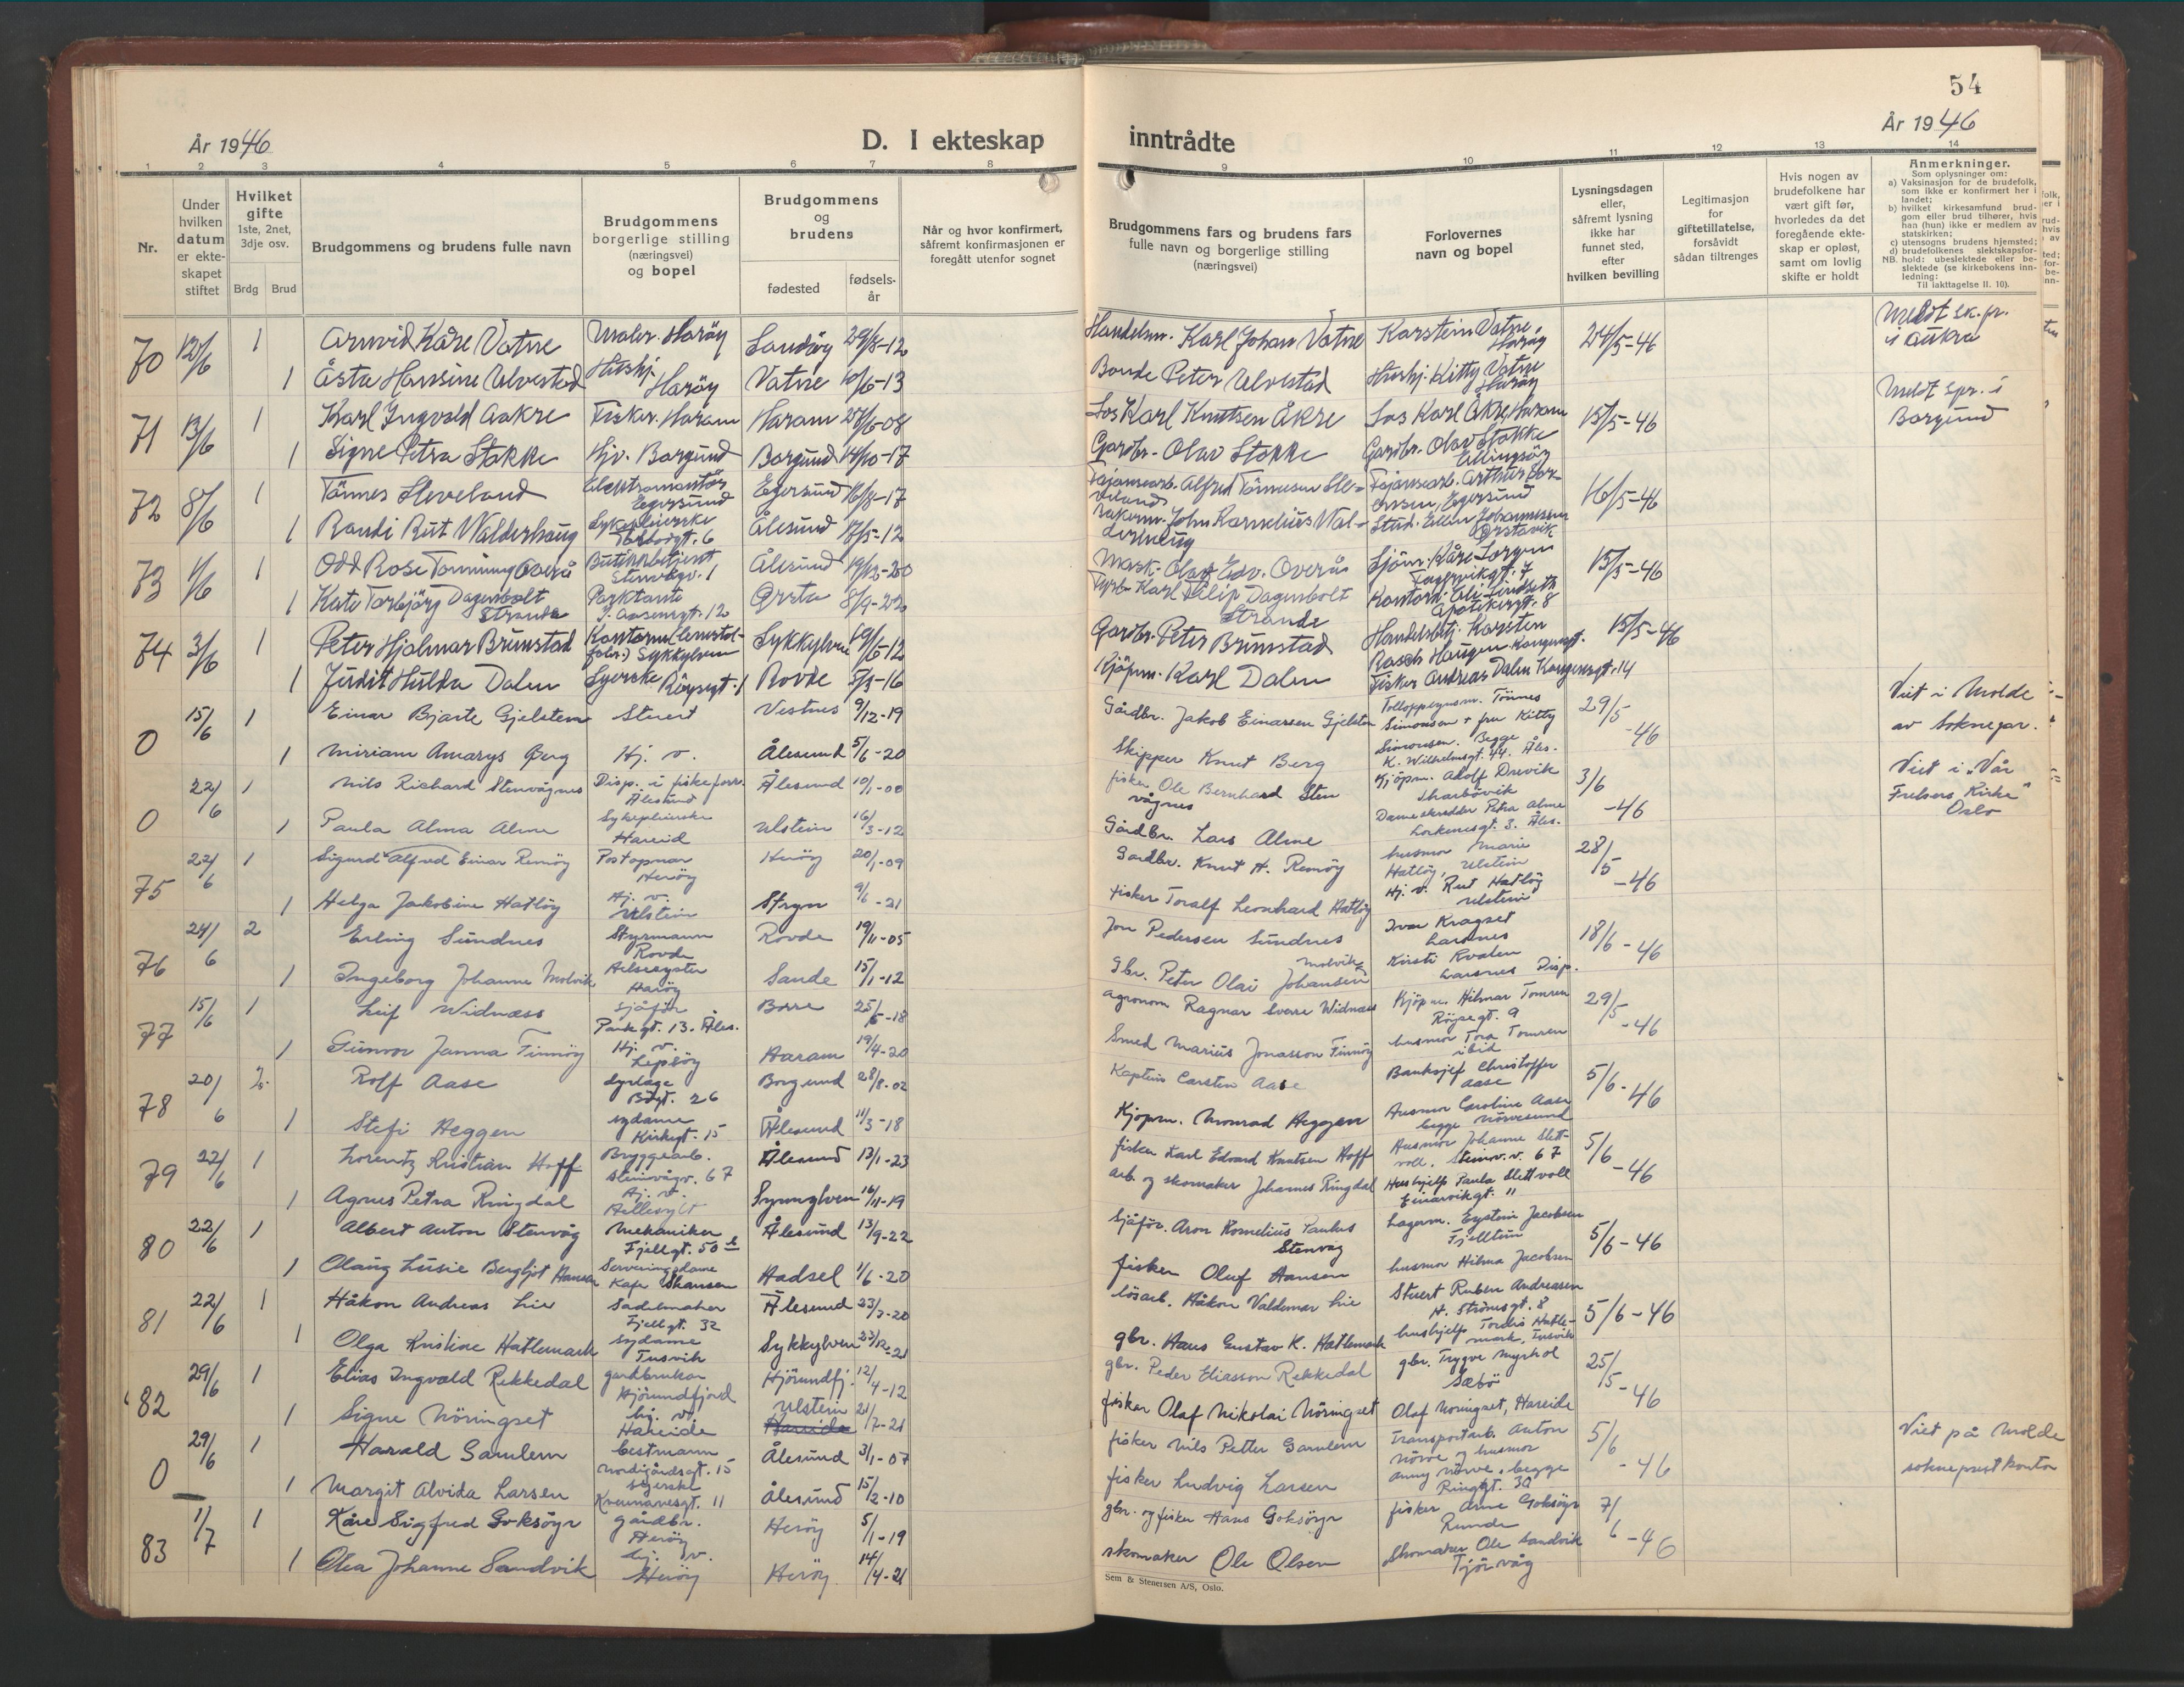 54
År 1946
D. I ekteskap inntrådte
År 1946
1 2 3 4 5 6 7 8 9 10 11 12 13 14
Nr.
Under hvilken datum er ekteskapet stiftet
Hvilket gifte 1ste, 2net, 3dje osv.
Brdg Brud
Brudgommens og brudens fulle navn
Brudgommens borgerlige stilling (næringsvei) og bopel
Brudgommens og brudens
fødested
fødselsår
Når og hvor konfirmert, såfremt konfirmasjonen er foregått utenfor sognet
Brudgommens fars og brudens fars fulle navn og borgerlige stilling (næringsvei)
Forlovernes navn og bopel
Lysningsdagen eller, såfremt lysning ikke har funnet sted, efter hvilken bevilling
Legitimasjon for giftetillatelse, forsåvidt sådan tiltrenges
Hvis nogen av brudefolkene har vært gift før, hvorledes da det foregående ekteskap er opløst, samt om lovlig skifte er holdt
Anmerkninger.
Som oplysninger om:
a) Vaksinasjon for de brudefolk, som ikke er konfirmert her i landet;
b) hvilket kirkesamfund brudgom eller brud tilhører, hvis han (hun) ikke er medlem av statskirken;
c) utensogns brudens hjemsted;
d) brudefolkenes slektskapsforhold: ubeslektede eller beslektede (se kirkebokens innledning:
NB.
Til iakttagelse II. 10).
70 12/6 1 Arnvid Kåre Vatne Maler. Harøy Sandøy 29/8-12 Handelsm. Karl Johan Vatne Karstein Vatne, Harøy 24/5-46 Meldt sk.pr. i Aukra
1 Åsta Hansine Ulvestad Hushj. Harøy Vatne 10/6-13 Bonde Peter Ulvestad Hushj. Kitty Vatne Harøy
71 13/6 1 Karl Ingvald Aakre Fisker. Haram Haram 27/6-08 Los Karl Knutsen Åkre Los Karl Åkre, Haram 15/5-46 Meldt spr. i Borgund
1 Signe Petra Stokke Hjv. Borgund Borgund 14/10-17 Gardbr. Olav Stokke Gardbr. Olav Stokke Ellingsøy
72 8/6 1 Tönnes Sleveland Elektromontör Egersund Egersund 16/8-17 Fajansearb. Alfred Tönnesen Sleveland Fajansearb. Arthur 16/5-46
1 Randi Rut Walderhaug Sykepleierske Ålesund 17/5-12 John Kornelius Walderhaug Stud. Ellen Johannessen Ørstavik
73 1/6 1 Odd Rose Tonning Overå Butikkbetjent Ålesund 19/12-20 Mask. Olaf Edv. Overå Sjöm. Kåre Torgren 15/5-46
1 Kate Torbjörg Dagenbolt Strande Parktante I. Aasensgt. 12 Ørsta 8/9-22 Karl Filip Dagenbolt Strande Apotekergt. 8
74 3/6 1 Peter Hjalmar Brunstad Sykkylven Sykkylven 29/5-12 Gardbr. Peter Brunstad Handelsbtj. Karsten Rasch Haugen Kongensgt. 15/5-46
1 Judit Hulda Dalen Syerske Röysegt. 1 Rovde 5/3-16 Kjöpm. Karl Dalen Fisker Andreas Dalen Kongensgt. 14
0 15/6 1 Einar Bjarte Gjelsten Stuert Vestnes 9/12-19 Gårdbr. Jakob Einarsen Gjelsten Tolloppsynsm. Tönnes Simonsen + fru Kitty 29/5-46 Viet i Molde av Soknepr.
1 Miriam Amarys Berg Hj. v. Ålesund 5/6-20 Skipper Knut Berg Simonsen. Begge K. Wilhelmsgt. 44. Åles.
0 22/6 1 Nils Richard Stenvågnes Disp. i fiskeforr. Ålesund Ålesund 10/1-00 fisker Ole Bernhard Stenvågnes Kjöpm. Adolf Drevik Skarbövik 3/6-46 Viet i "Vår Frelsers Kirke" Oslo
1 Paula Alma Alme Sykepleierske Hareid Ulstein 16/3-12 Gårdbr. Lars Alme Dameskredder Petra Alme Lorkenesgt. 3. Åles.
75 22/6 1 Sigurd Alfred Einar Remöy Postopnar Heröy Heröy 20/1-09 Gardbr. Knut H. Remöy husmor Marie Hatlöy, Ulstein 28/5-46
1 Helga Jakobine Hatlöy Hj. v. Ulstein Stryn 9/6-21 fisker Toralf Leonhard Hatlöy Hj. v. Rut Hatlöy Ulstein
76 24/6 2 Erling Sundnes Styrmann Rovde Rovde 19/11-05 Jon Pedersen Sundnes Ivar Kragset Larsnes 18/6-46
1 Ingeborg Johanne Molvik Helsesyster Haröy Sande 15/1-12 Gbr. Peter Olai Johansen Molvik Kirsti Kvalen Larsnes Disp.
77 15/6 1 Leif Widnæss Sjåför Parkgt. 13. Åles. Borre 25/5-18 agronom Ragnar Sverre Widnæss Kjöpm. Hilmar Tomren Röysegt. 9 29/5-46
1 Gunvor Janna Finnöy Hj. v. Lepsöy Haram 19/4-20 Smed Marius Jonasson Finnöy husmor Tora Tomren ibid
78 20/6 2. Rolf Aase dyrlæge 26 Borgund 28/8-02 Kaptein Carsten Aase Banksjef Christoffer Aase 5/6-46
1 Stefi Heggen sydame Kirkegt. 15 Ålesund 11/3-18 Kjöpm. Monrad Heggen Husmor Caroline Aase begge Nörvesund
79 22/6 1 Lorentz Kristian Hoff Bryggearb. Steinvågv. 67 Ålesund 13/1-23 fisker Karl Edvard Knutsen Hoff Husmor Johanne Slettvoll. Steinv.v. 67 5/6-46
1 Agnes Petra Ringdal Hj. v. Hellesylt Synnylven 16/11-19 arb. og skomaker Johannes Ringdal Hushjelp Paula Slettvoll Einarvikgt. 11
80 22/6 1 Albert Anton Stenvåg Mekaniker Fjellgt. 50 b Ålesund 13/9-22 Sjåför. Aron Kornelius Paulus Stenvåg Lagerm. Eystein Jacobsen Fjelltun 5/6-46
1 Olaug Lusie Bergljot Hansen Serveringsdame Kafe Skansen Hadsel 1/6-20 fisker Oluf Hansen husmor Hilma Jacobsen
81 22/6 1 Håkon Andreas Lie Sadelmaker Fjellgt. 32 Ålesund 23/3-20 lösarb. Håkon Valdemar Lie Stuert Ruben Andreasen H. Strömsgt. 8 5/6-46
1 Olga Kristine Hatlemark sydame Tusvik Sykkylven 23/12-21 gbr. Hans Gustav K. Hatlemark hushjelp Tordis Hatlemark, Tusvik
82 29/6 1 Elias Ingvald Rekkedal gardbrukar Hjörundfjord Hjörundfj. 12/4-12 gbr. Peder Eliasson Rekkedal gbr. Trygve Myrhol Sæbö 25/5-46
1 Signe Nöringset hj. v. Hareide Ulstein 21/7-21 fisker Olaf Nikolai Nöringset Olaf Nöringset, Hareide
0 29/6 1 Harald Gamlem bestmann Nordigårdsgt. 15 Ålesund 3/1-07 fisker Nils Petter Gamlem Transportarb. Anton Nörve og husmor 5/6-46 Viet på Molde sokneprestkontor
1 Margit Alvida Larsen syerske 11 Ålesund 15/2-10 fisker Ludvig Larsen Anny Nörve, begge Ringgt. 30
83 1/7 1 Kåre Sigfred Goksöyr gårdbr. Heröy Heröy 5/1-19 gbr. og fisker Hans Goksöyr fisker Arne Goksöyr Runde 7/6-46
1 Olea Johanne Sandvik hj. v. Heröy Heröy 14/4-21 skomaker Ole Olsen Skomaker Ole Sandvik Tjörvåg
Sem & Stenersen A/S, Oslo.